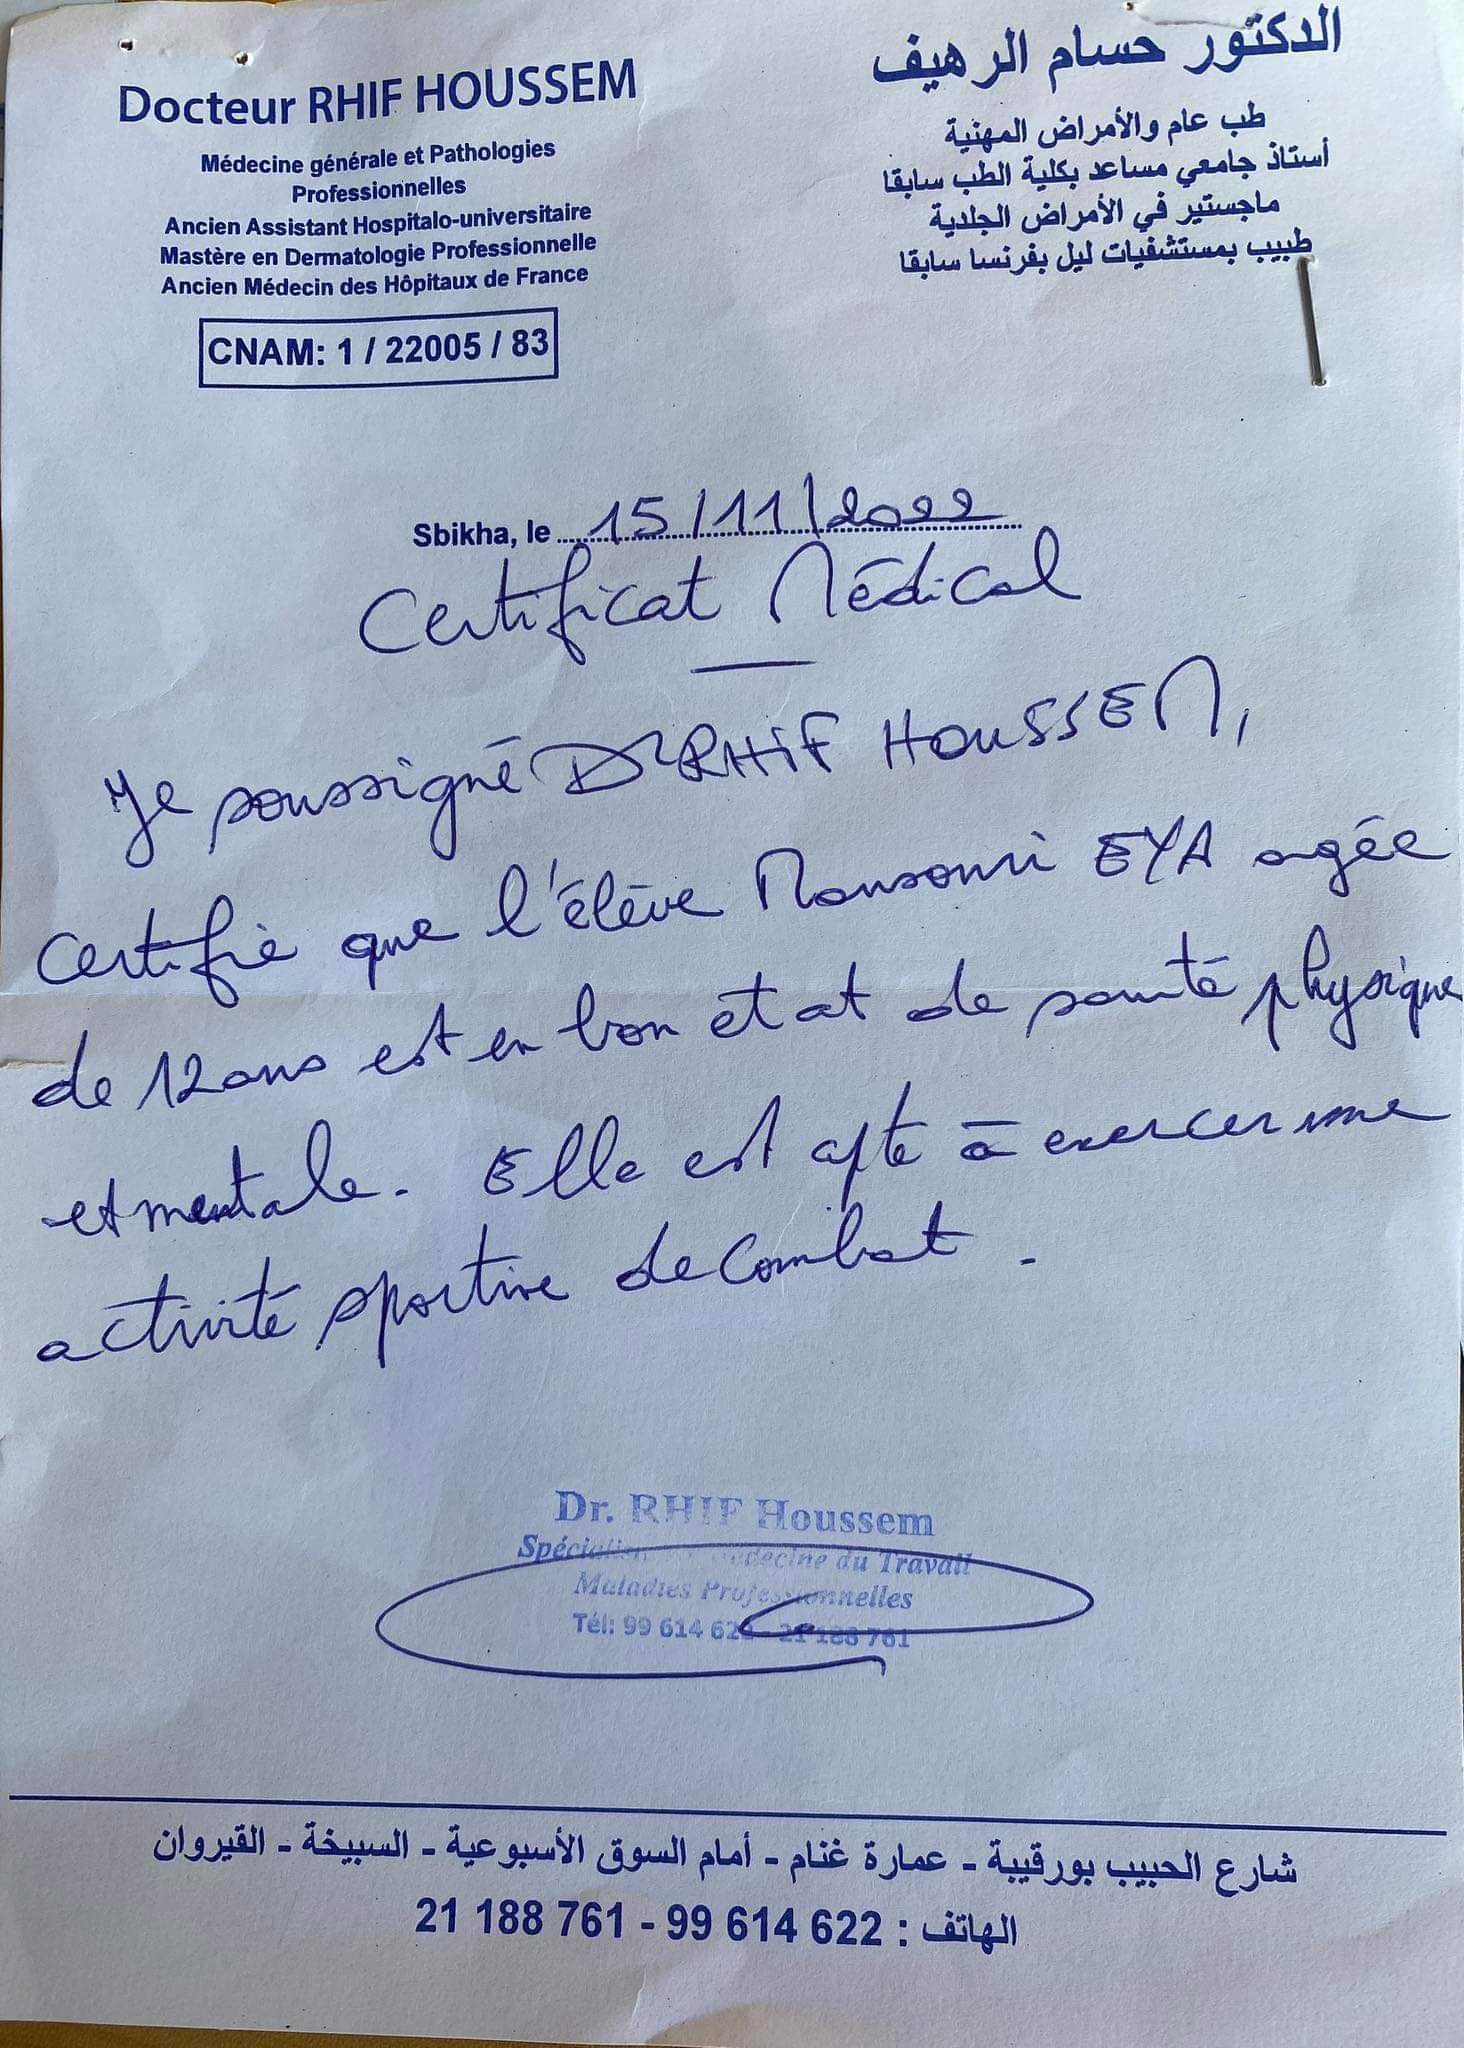 Docteur RHIF HOUSSEM
Médecine générale et Pathologies
Professionnelles
Ancien Assistant Hospitalo-universitaire
Mastère en Dermatologie Professionnelle
Ancien Médecin des Hôpitaux de France
CNAM: 1 / 22005 / 83
الدكتور حسام الرهيف
طب عام والأمراض المهنية
أستاذ جامعي مساعد بكلية الطب سابقا
ماجستير في الأمراض الجلدية
طبيب بمستشفيات ليل بفرنسا سابقا
Sbikha, le 15/11/2022
Certificat Médical
Je soussigné Dr RHIF HOUSSEM,
certifie que l'élève Mansouri EYA agée
de 12 ans est en bon etat de santé physique
et mentale. Elle est apte à exercer une
activité sportive de combat.
Dr. RHIF Houssem
Spécialiste en Médecine du Travail
Maladies Professionnelles
Tél: 99 614 622 - 21 188 761
شارع الحبيب بورقيبة - عمارة غنام - أمام السوق الأسبوعية - السبيخة - القيروان
الهاتف : 99 614 622 - 21 188 761